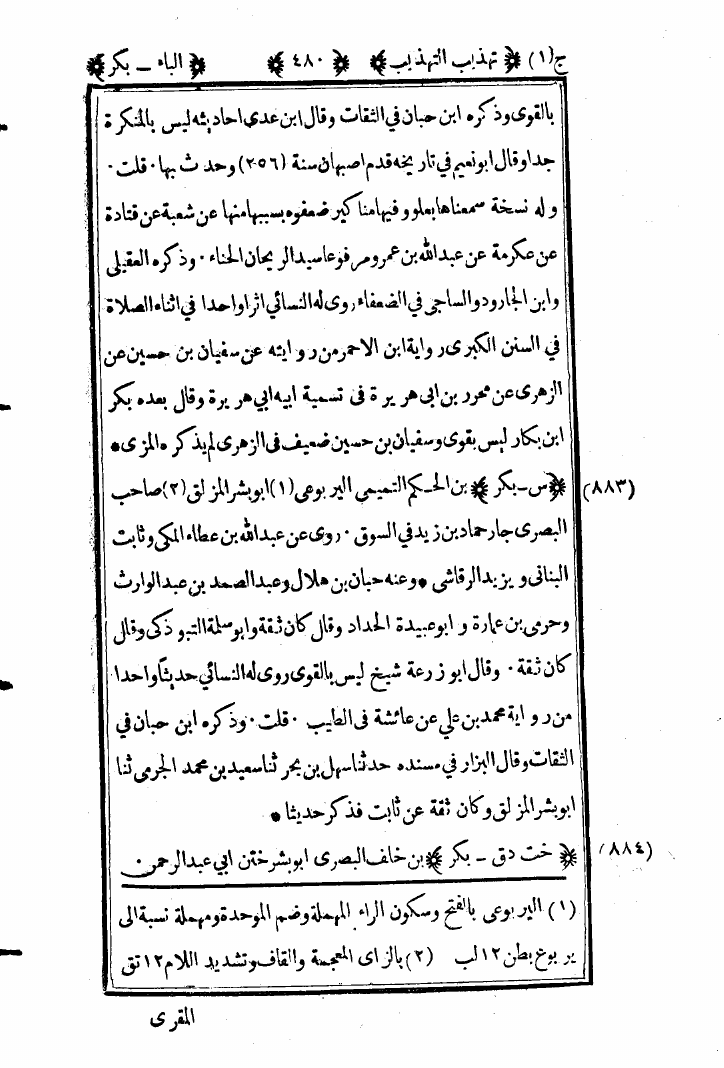 ج(١) ﴿تهذيب التهذيب﴾ ﴿٤٨٠﴾ ﴿الباء ـ بكر﴾
بالقوى وذكره ابن حبان في الثقات وقال ابن عدى احاديثه ليس بالمنكرة
جدا وقال ابو نعيم في تاريخه قدم اصبهان سنة (٢٥٦) وحدث بها . قلت .
وله نسخة سمعناها بعلو وفيها مناكير ضعفوه بسببها منها عن شعبة عن قتادة
عن عكرمة عن عبدالله بن عمرو مرفوعا سيد الريحان الحناء . وذكره العقيلى
وابن الجارود والساجى في الضعفاء روى له النسائي اثرا واحدا في اثناء الصلاة
في السنن الكبرى رواية ابن الاحمر من روايته عن سفيان بن حسين عن
الزهرى عن محرر بن ابى هريرة فى تسمية ابيه ابي هريرة وقال بعده بكر
ابن بكار ليس بقوى وسفيان بن حسين ضعيف فى الزهرى لم يذكره المزى *
(٨٨٣) ﴿س ـ بكر﴾ بن الحكم التميمي اليربوعى (١) ابو بشر المزلق (٢) صاحب
البصرى جار حماد بن زيد في السوق . روى عن عبدالله بن عطاء المكى وثابت
البنانى ويزيد الرقاشى * وعنه حبان بن هلال وعبدالصمد بن عبدالوارث
وحرمى بن عمارة و ابو عبيدة الحداد وقال كان ثقة وابو سلمة التبوذكى وقال
كان ثقة . وقال ابو زرعة شيخ ليس بالقوى روى له النسائي حديثا واحدا
من رواية محمد بن علي عن عائشة فى الطيب . قلت . وذكره ابن حبان في
الثقات وقال البزار في مسنده حدثنا سهل بن بحر ثنا سعيد بن محمد الجرمى ثنا
ابو بشر المزلق وكان ثقة عن ثابت فذكر حديثا *
(٨٨٤) ﴿خت دق ـ بكر﴾ بن خلف البصرى ابو بشر ختن ابي عبدالرحمن
(١) اليربوعى بالفتح وسكون الراء المهملة وضم الموحدة ومهملة نسبة الى
يربوع بطن ١٢ لب (٢) بالزاى المعجمة والقاف وتشديد اللام ١٢ تق
المقرى